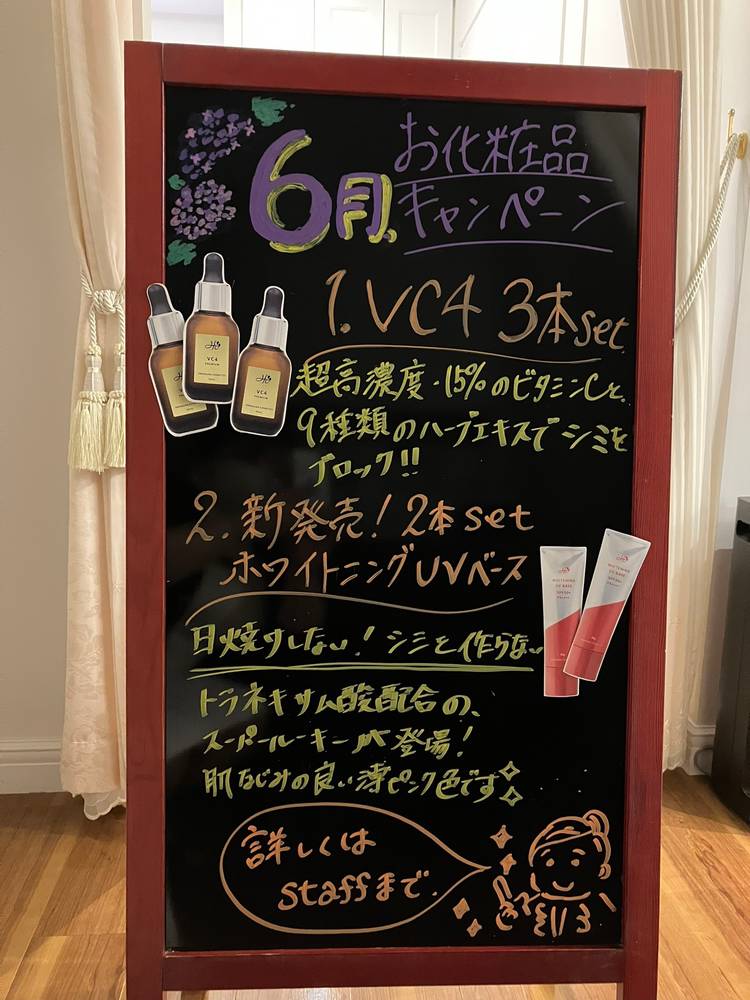 6月、お化粧品
キャンペーン
1. VC4 3本set
超高濃度・15%のビタミンCと、
9種類のハーブエキスでシミを
ブロック!!
VC4
PREMIUM
VC4
PREMIUM
2. 新発売! 2本set
ホワイトニングUVベース
WHITENING
UV BASE
SPF50+
WHITENING
UV BASE
SPF50+
日焼けしない! シミを作らない
トラネキサム酸配合の、
スーパールーキーが登場!
肌なじみの良い薄ピンク色です
詳しくは
staffまで.